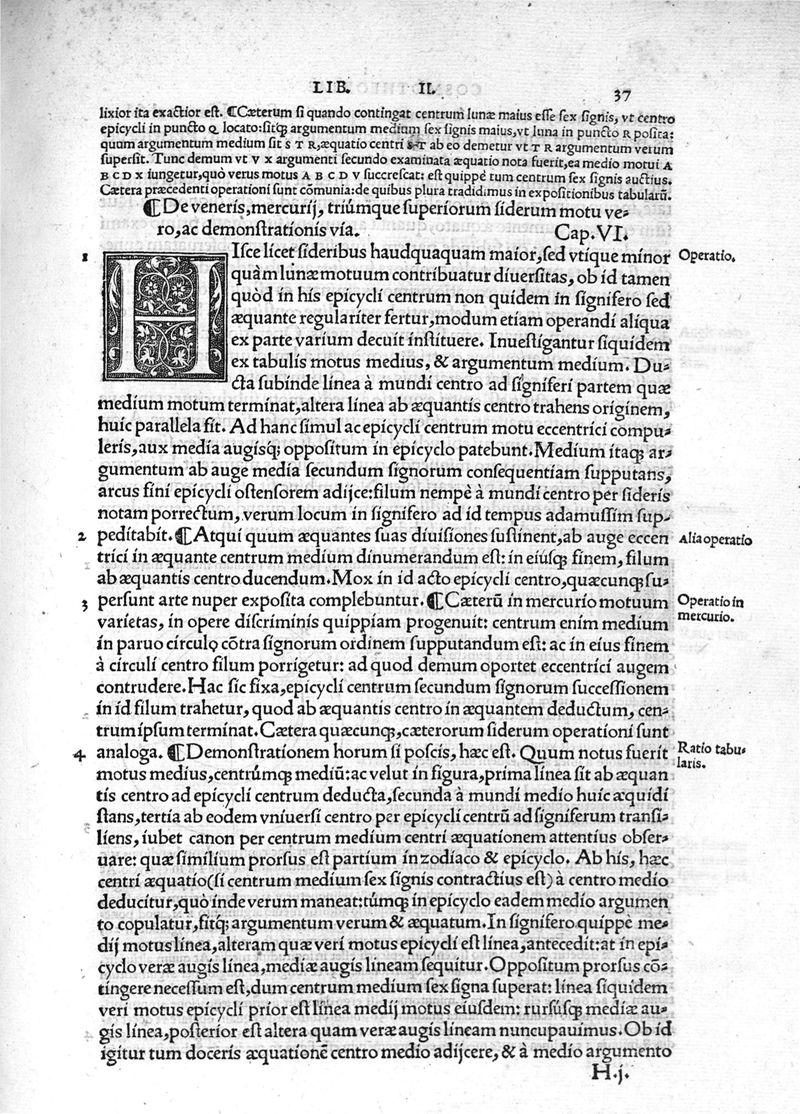 LIB. II. 37
lixior ita exactior est. ¶Cæterum si quando contingat centrum lunæ maius esse sex signis, vt centro
epicycli in puncto Q locato: sitqꝫ argumentum medium sex signis maius, vt luna in puncto R posita:
quum argumentum medium sit S T R, æquatio centri S T ab eo demetur vt T R argumentum verum
supersit. Tunc demum vt V X argumenti secundo examinata æquatio nota fuerit, ea medio motui A
B C D X iungetur, quò verus motus A B C D V succrescat: est quippe tum centrum sex signis auctius.
Cætera præcedenti operationi sunt cōmunia: de quibus plura tradidimus in expositionibus tabularū.
¶De veneris, mercurij, triúmque superiorum siderum motu ve-
ro, ac demonstrationis vía. Cap. VI.
1 HIsce licet sideribus haudquaquam maior, sed vtique minor Operatio.
quàm lunæ motuum contribuatur diuersitas, ob id tamen
quòd in his epicycli centrum non quidem in signifero sed
æquante regulariter fertur, modum etiam operandi aliqua
ex parte varium decuit instituere. Inuestigantur siquidem
ex tabulis motus medius, & argumentum medium. Du-
cta subinde linea à mundi centro ad signiferi partem quæ
medium motum terminat, altera linea ab æquantis centro trahens originem,
huic parallela fit. Ad hanc simul ac epicycli centrum motu eccentrici compu-
leris, aux media augisqꝫ oppositum in epicyclo patebunt. Medium itaqꝫ ar-
gumentum ab auge media secundum signorum consequentiam supputans,
arcus fini epicycli ostensorem adijce: filum nempè à mundi centro per sideris
notam porrectum, verum locum in signifero ad id tempus adamussim sup-
2 peditabit. ¶Atqui quum æquantes suas diuisiones sustinent, ab auge eccen Alia operatio
trici in æquante centrum medium dinumerandum est: in eiúsqꝫ finem, filum
ab æquantis centro ducendum. Mox in id acto epicycli centro, quæcunqꝫ su-
3 persunt arte nuper exposita complebuntur. ¶Cæterū in mercurio motuum Operatio in
varietas, in opere discriminis quippiam progenuit: centrum enim medium mercurio.
in paruo circulo cōtra signorum ordinem supputandum est: ac in eius finem
à circuli centro filum porrigetur: ad quod demum oportet eccentrici augem
contrudere. Hac sic fixa, epicycli centrum secundum signorum successionem
in id filum trahetur, quod ab æquantis centro in æquantem deductum, cen-
trum ipsum terminat. Cætera quæcunqꝫ, cæterorum siderum operationi sunt
4 analoga. ¶Demonstrationem horum si poscis, hæc est. Quum notus fuerit Ratio tabu-
motus medius, centrúmqꝫ mediū: ac velut in figura, prima linea sit ab æquan laris.
tis centro ad epicycli centrum deducta, secunda à mundi medio huic æquidi
stans, tertia ab eodem vniuersi centro per epicycli centrū ad signiferum transi-
liens, iubet canon per centrum medium centri æquationem attentius obser-
uare: quæ similium prorsus est partium in zodiaco & epicyclo. Ab his, hæc
centri æquatio (si centrum medium sex signis contractius est) à centro medio
deducitur, quò inde verum maneat: túmqꝫ in epicyclo eadem medio argumen
to copulatur, fitqꝫ argumentum verum & æquatum. In signifero quippe me-
dij motus linea, alteram quæ veri motus epicycli est linea, antecedit: at in epi-
cyclo veræ augis linea, mediæ augis lineam sequitur. Oppositum prorsus cō-
tingere necessum est, dum centrum medium sex signa superat: linea siquidem
veri motus epicycli prior est linea medij motus eiusdem: rursúsqꝫ mediæ au-
gis linea, posterior est altera quam veræ augis lineam nuncupauimus. Ob id
igitur tum doceris æquationē centro medio adijcere, & à medio argumento
H.j.